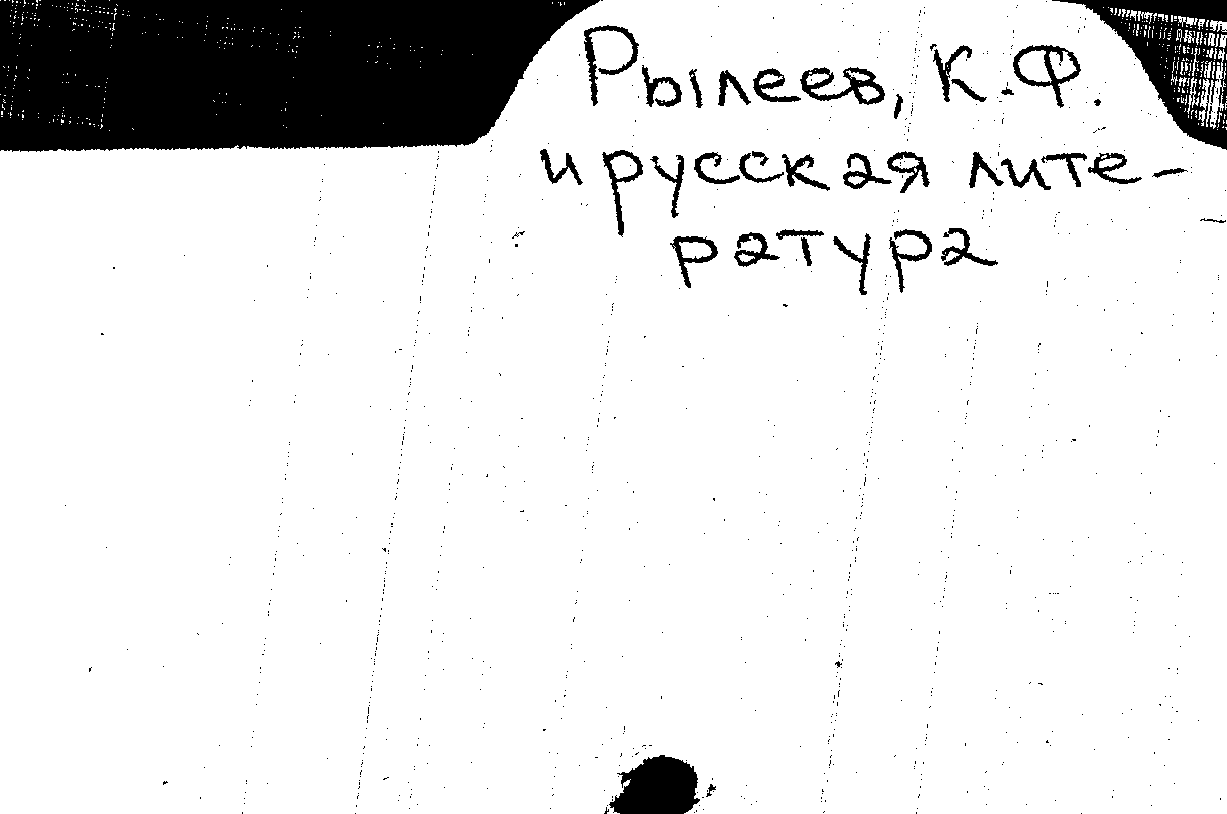 Рылеев, К.Ф.
и русская лите-
ратура